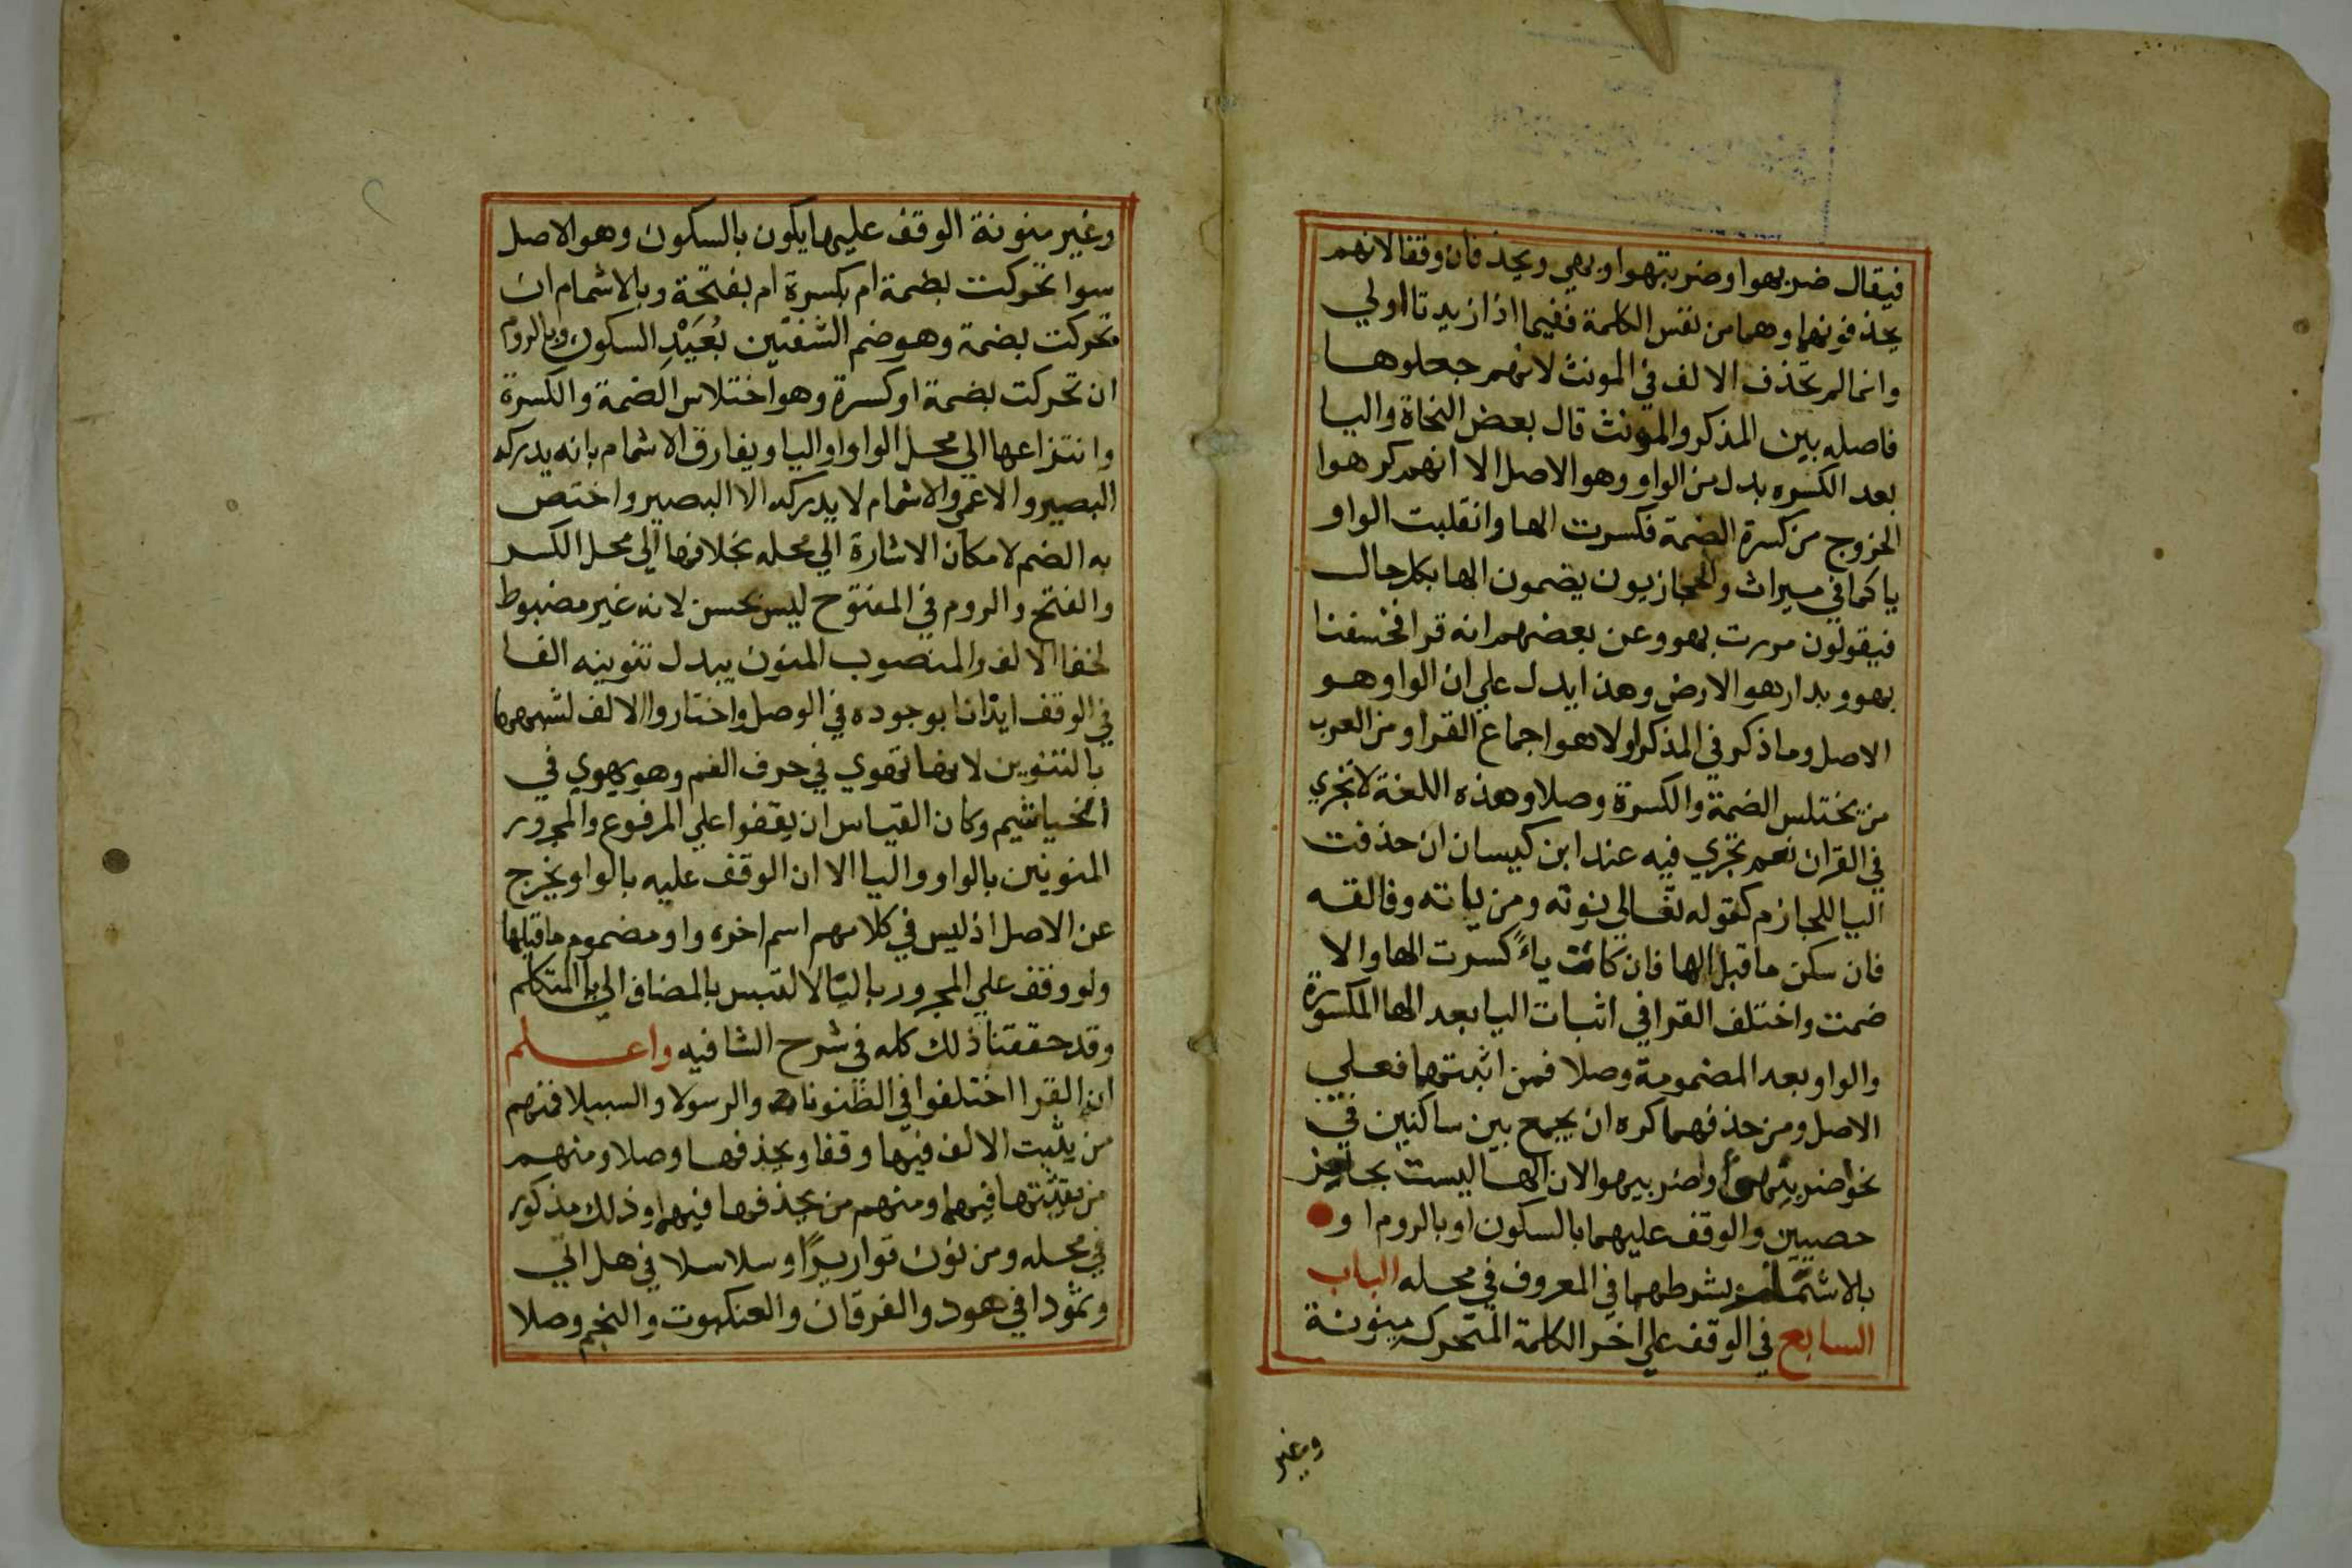 فيقال ضربهوا وضربتهوا وبهي ويحذفان وقفا لانهم
يحذفونهما وهما من نفس الكلمة ففيما اذا زيدتا اولي
وانما لم تحذف الالف في المونث لانهم جعلوها
فاصله بين المذكر والمونث قال بعض النحاة واليا
بعد الكسره بدل من الواو وهو الاصل الا انهم كرهوا
الخروج من كسرة الضمة فكسرت الها وانقلبت الواو
يا كما في ميراث والحجازيون يضمون الها بكل حال
فيقولون مررت بهو وعن بعضهم انه قرا فخسفنا
بهو وبدارهو الارض وهذا يدل علي ان الواو هو
الاصل وما ذكر في المذكر اولا هو اجماع القرا ومن العرب
من يختلس الضمة والكسرة وصلا وهذه اللغة لا تجري
في القران نعم تجري فيه عند ابن كيسان ان حذفت
اليا للجازم كقوله تعالي نوته ومن ياته وفالقه
فان سكن ما قبل الها فان كانت ياءً كسرت الها والا
ضمت واختلف القرا في اثبات اليا بعد الها المكسورة
والواو بعد المضمومة وصلا فمن اثبتهما فعلي
الاصل ومن حذفهما كره ان يجمع بين ساكنين في
نحو اضربيهي واضربيهو الان الها ليست بحاجز
حصيين والوقف عليهما بالسكون او بالروم ا و
بالاشمام بشرطهما في المعروف في محله الباب
السابع في الوقف علي اخر الكلمة المتحركه منونة
وغير
وغير منونة الوقف عليها يكون بالسكون وهو الاصل
سوا تحركت بضمة ام بكسرة ام بفتحة وبالاشمام ان
تحركت بضمة وهو ضم الشفتين بُعَيْدِ السكون وبالروم
ان تحركت بضمة او كسرة وهو اختلاس الضمة والكسرة
وانتزاعها الي محل الواو او اليا ويفارق الاشمام بانه يدركه
البصير والاعمي والاشمام لا يدركه الا البصير واختص
به الضم لامكان الاشارة الي محله بخلافها الي محل الكسر
والفتح والروم في المفتوح ليس بحسن لانه غير مضبوط
لخفا الالف والمنصوب المنون يبدل تنوينه الفا
في الوقف ايذانا بوجوده في الوصل واختاروا الالف لشبهها
بالتنوين لانها تهوي في حرف الفم وهو يهوي في
الخياشيم وكان القياس ان يقفوا علي المرفوع والمجرور
المنونين بالواو واليا الا ان الوقف عليه بالواو يخرج
عن الاصل اذ ليس في كلامهم اسم اخره واو مضموم ما قبلها
ولو وقف علي المجرور باليا لالتبس بالمضاف الي يا المتكلم
وقد حققنا ذلك كله في شرح الشافيه واعلم
ان القرا اختلفوا في الظنونا والرسولا والسبيلا فمنهم
من يثبت الالف فيها وقفا ويحذفها وصلا ومنهم
من يثبتها فيهما ومنهم من يحذفها فيهما وذلك مذكور
في محله ومن نون قواريرًا وسلاسلا في هل اتي
وثمودا في هود والفرقان والعنكبوت والنجم وصلا